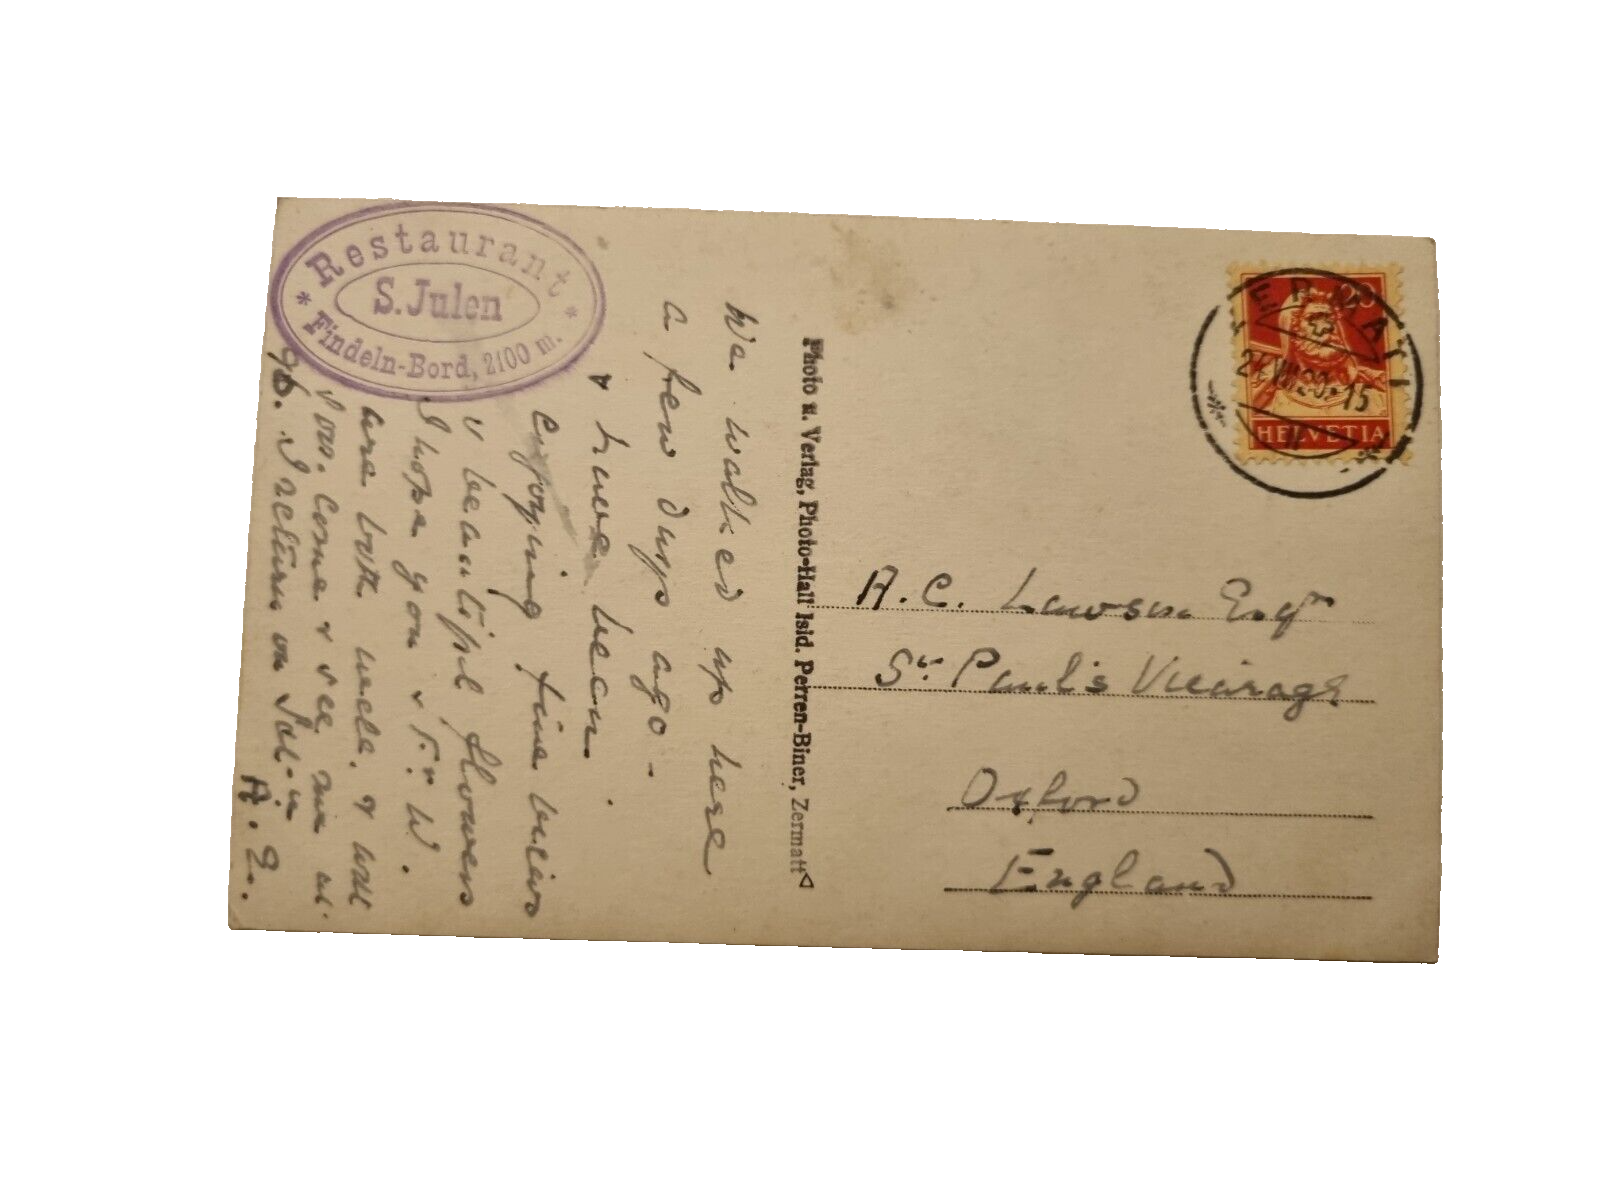 Restaurant
S. Julen
* Findeln-Bord, 2100 m. *
We walked up here
a few days ago -
& have been
enjoying fine views
& beautiful flowers
I hope you & F. W.
are both well. & will
soon come & see me at
96. I return on Sat.
A. E.
Photo u. Verlag, Photo-Hall Isid. Perren-Biner, Zermatt
ZERMATT
VIII 30 - 15
HELVETIA
A. C. Lawson Esqr
St. Paul's Vicarage
Oxford
England